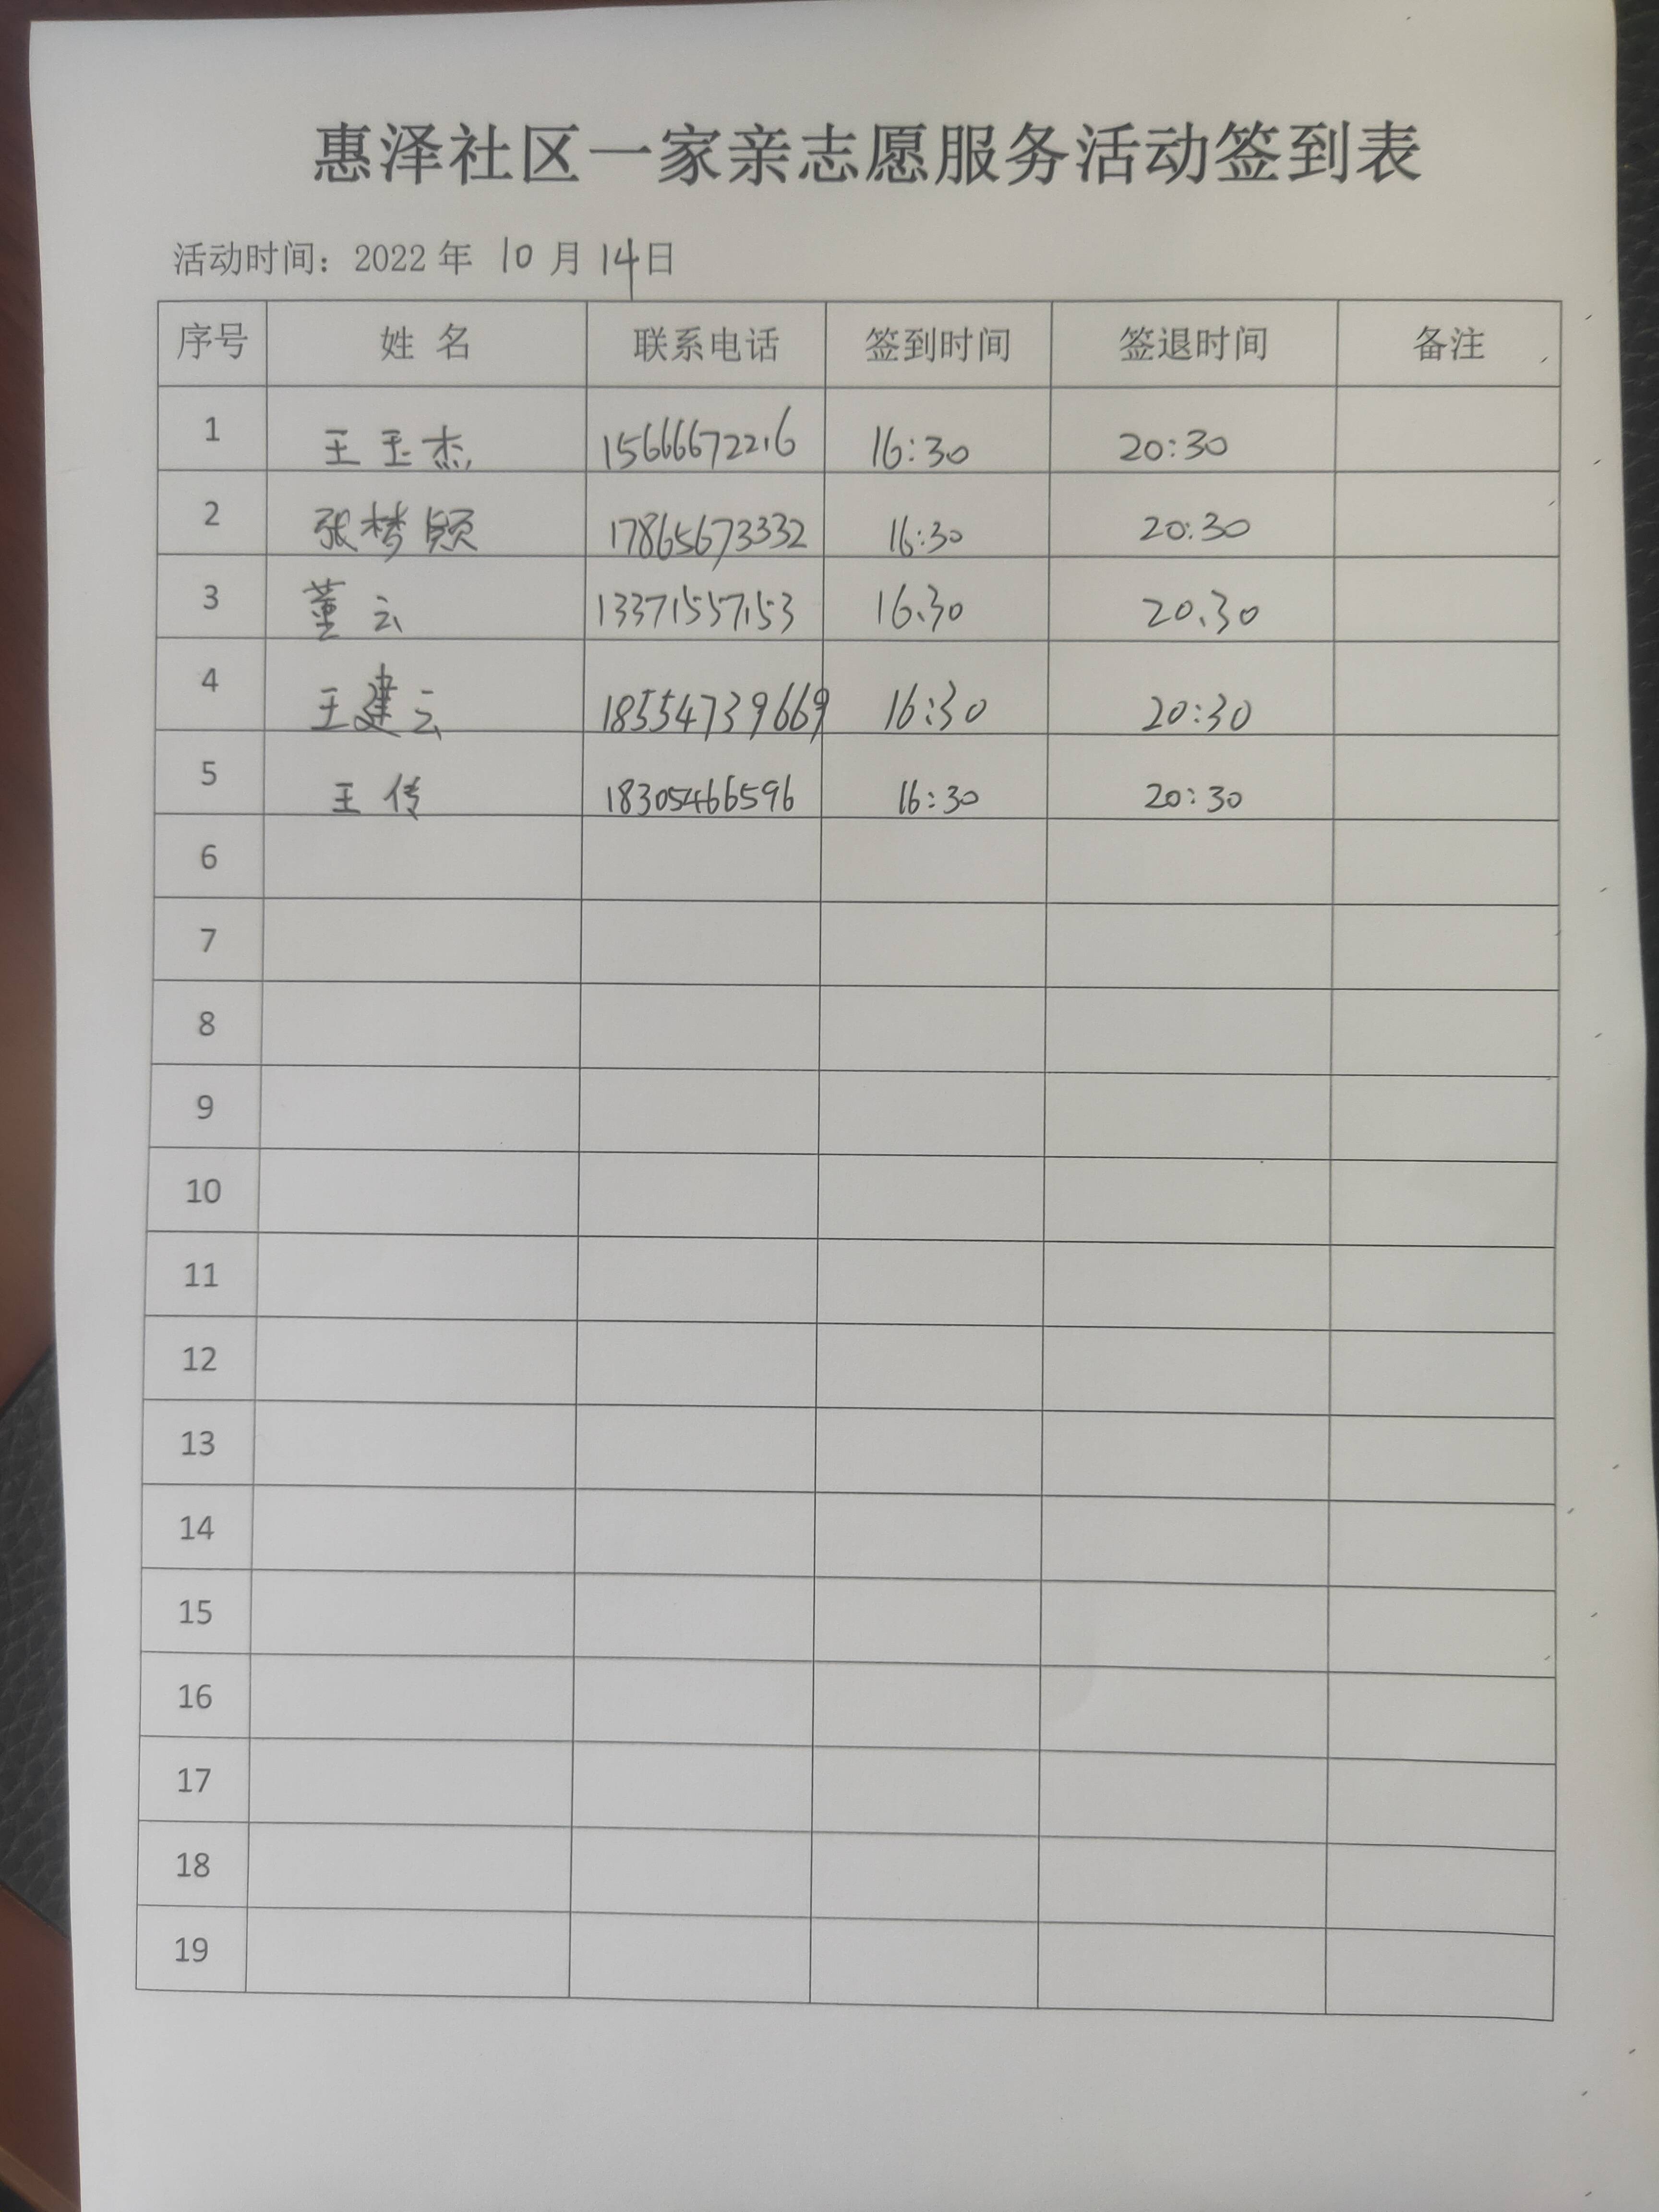 惠泽社区一家亲志愿服务活动签到表
活动时间：2022 年 10 月 14日
序号 姓 名 联系电话 签到时间 签退时间 备注
1 王玉杰 15666672216 16:30 20:30
2 张梦颖 17865673332 16:30 20:30
3 董云 13371557153 16.30 20.30
4 王建云 18554739669 16:30 20:30
5 王传 18305466596 16:30 20:30
6
7
8
9
10
11
12
13
14
15
16
17
18
19